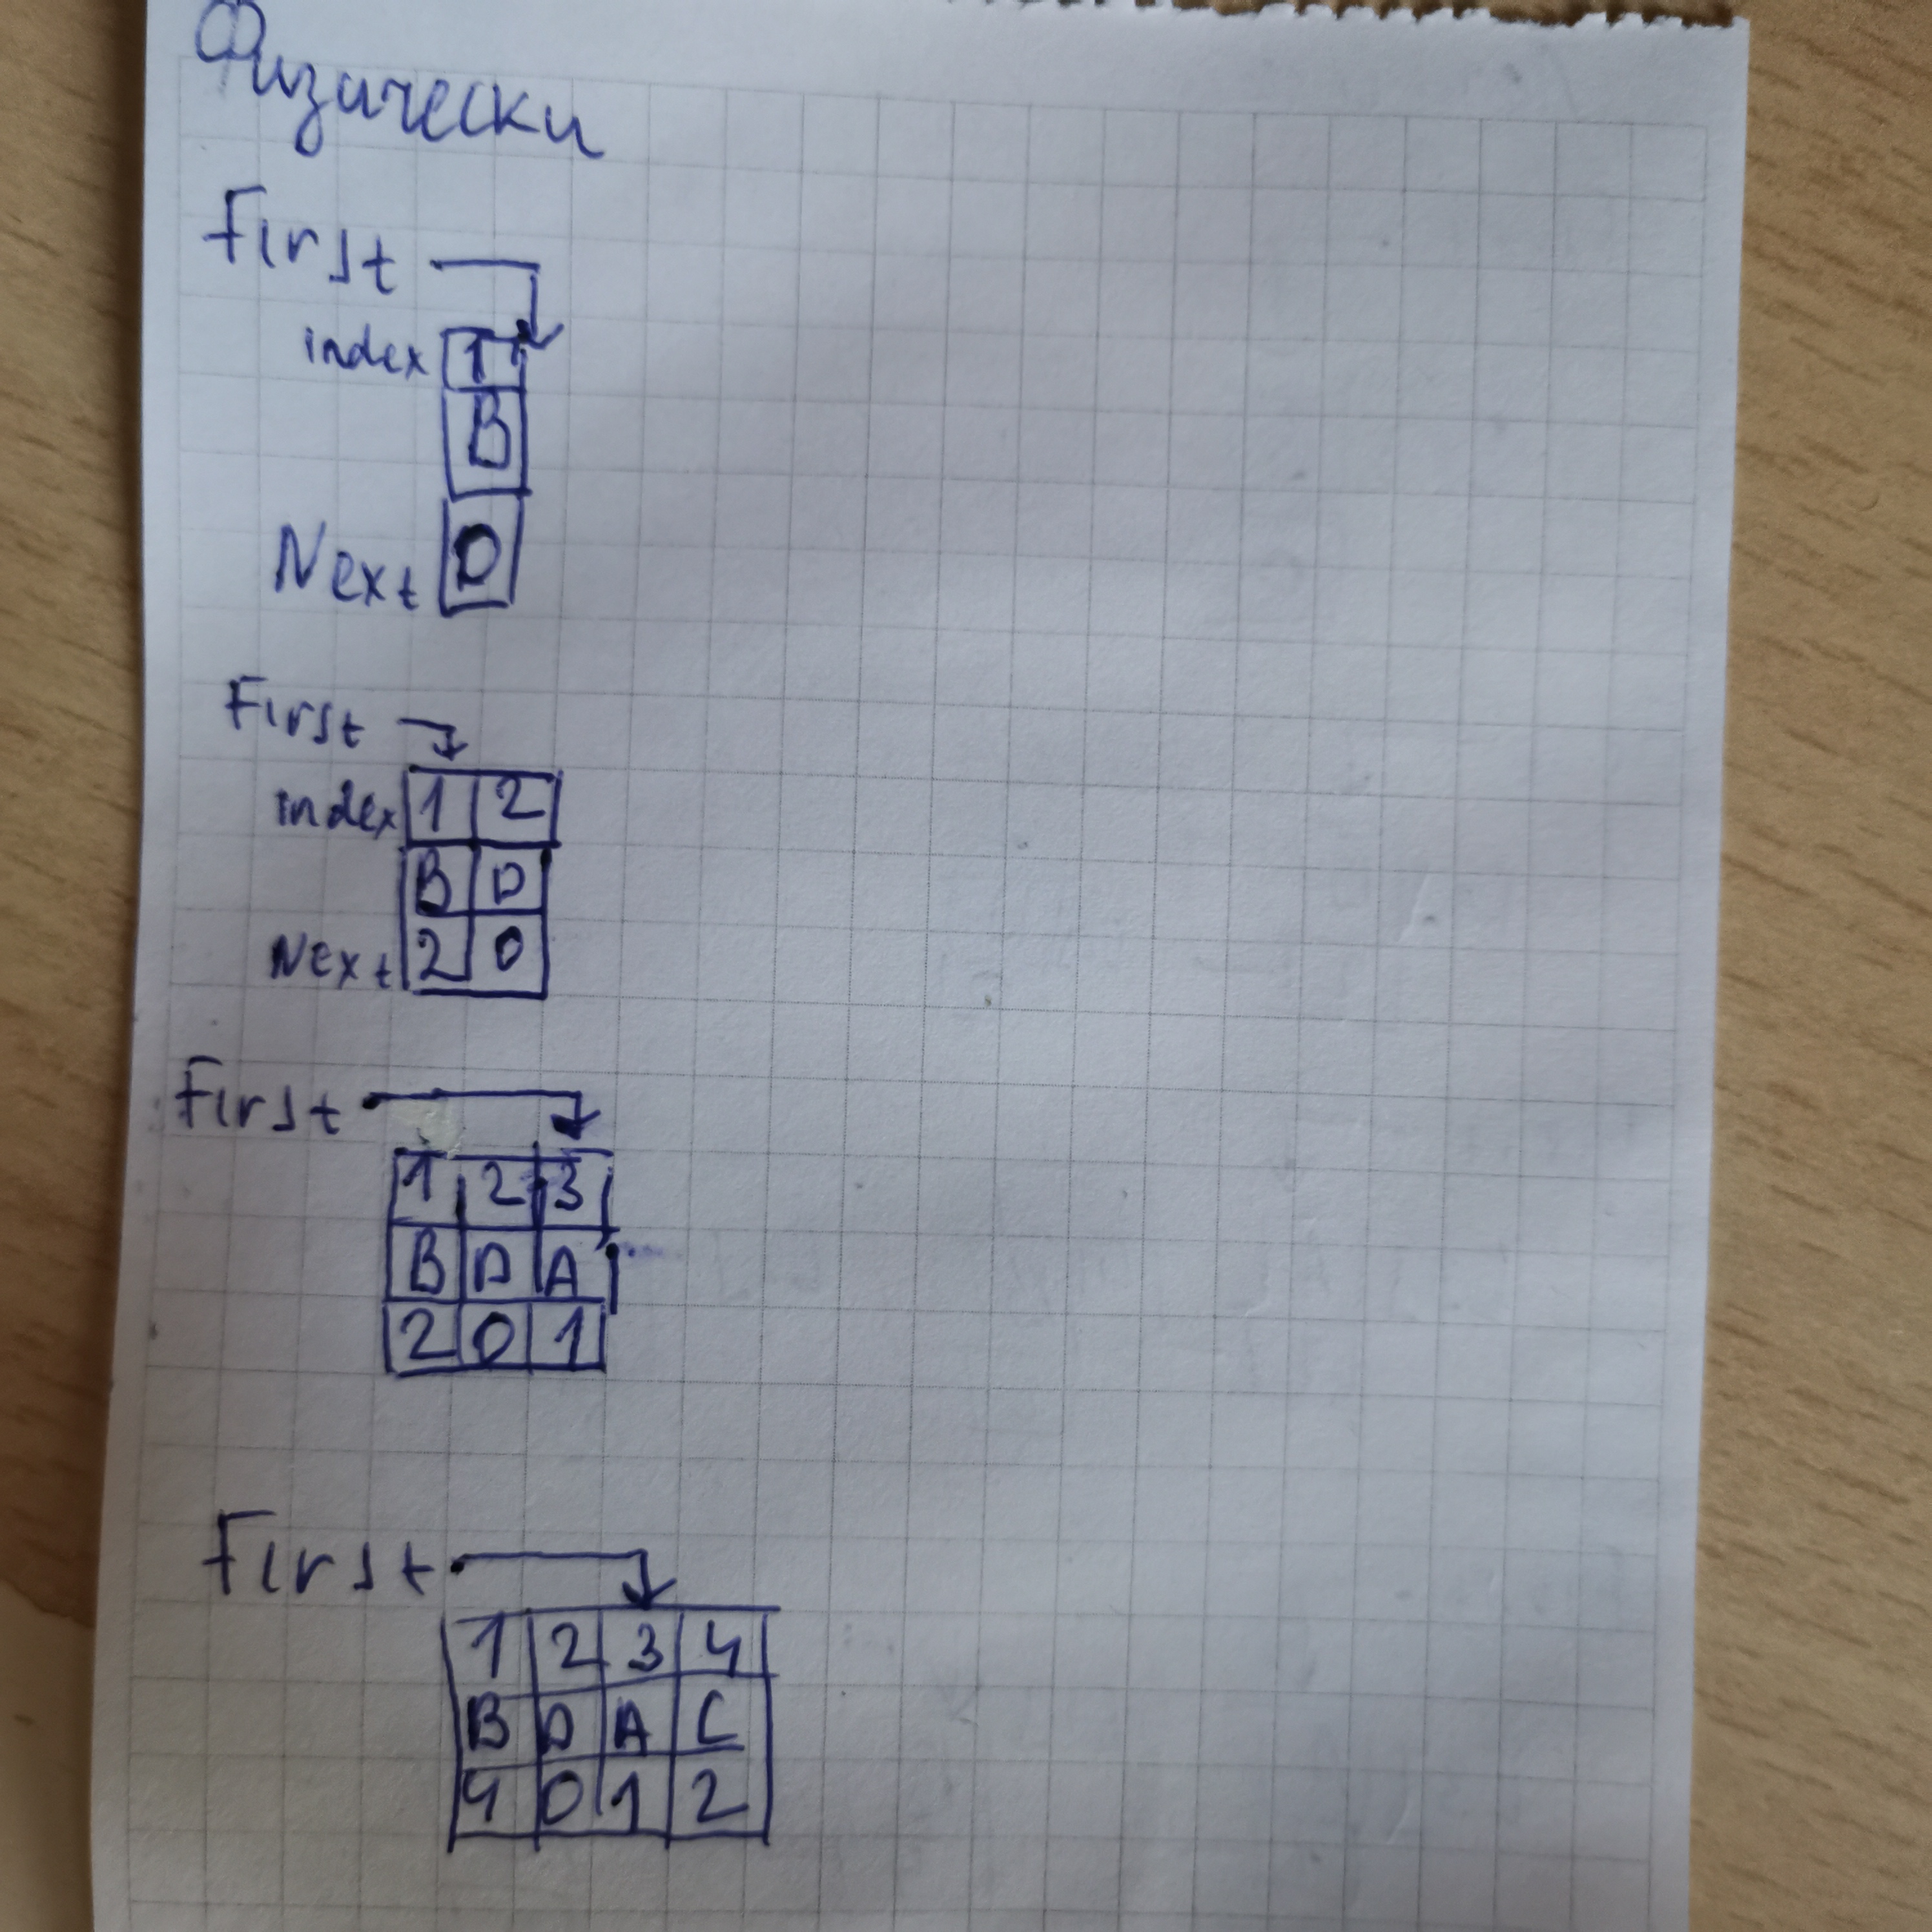 Физически
First
index 1
B
Next 0
First
index 1 2
B D
Next 2 0
First
1 2 3
B D A
2 0 1
First
1 2 3 4
B D A C
4 0 1 2